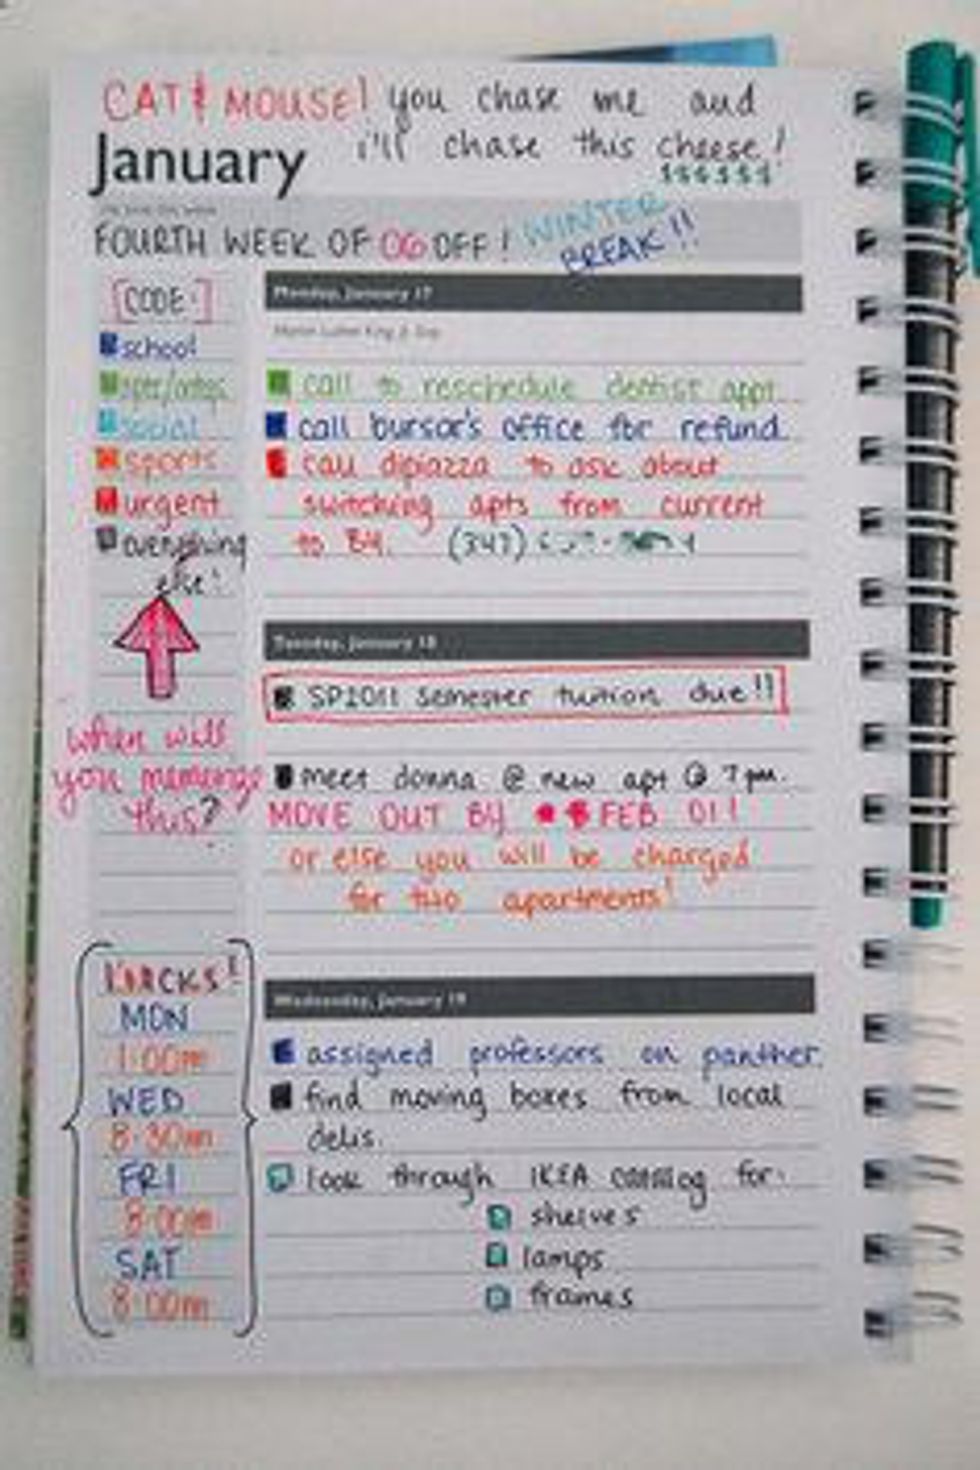 CAT & MOUSE! you chase me and
i'll chase this cheese!
$$$$$$
January
FOURTH WEEK OF 06 OFF! WINTER
BREAK!!
[CODE:]
school
social
sports
urgent
everything
else!
when will
you memorize
this?
KICKS!
MON
1:00am
WED
8:30am
FRI
8:00am
SAT
8:00am
Monday, January 17
Martin Luther King Jr. Day
call to reschedule dentist appt
call bursar's office for refund.
call dipiazza to ask about
switching apts from current
to B4. (347)
Tuesday, January 18
SP2011 semester tuition due!!
meet donna @ new apt @ 7pm.
MOVE OUT BY FEB 01!
or else you will be charged
for two apartments!
Wednesday, January 19
assigned professors on panther.
find moving boxes from local
delis.
look through IKEA catalog for:
shelves
lamps
frames